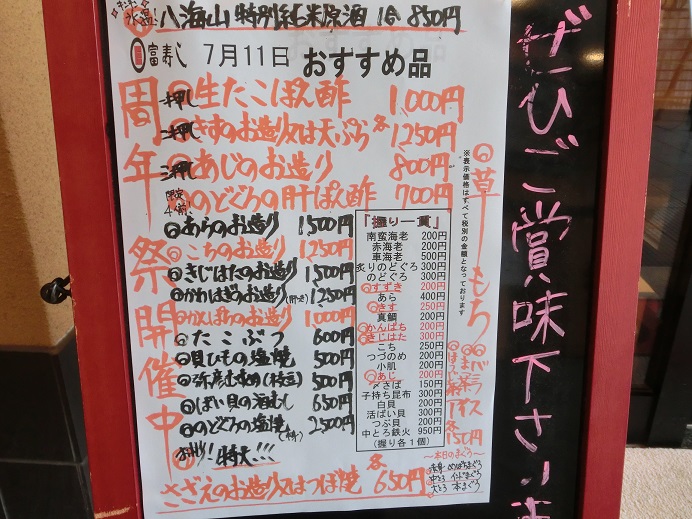 氷温! 八海山 特別純米原酒 1合 850円
富寿し 7月11日 おすすめ品
周年祭開催中
一押し 生たこぽん酢 1,000円
二押し きすのお造り又は天ぷら 各1,250円
三押し あじのお造り 800円
限定4個! のどぐろの肝ぽん酢 700円
あらのお造り 1500円
こちのお造り 1250円
きじはたのお造り 1500円
かわはぎのお造り(肝付) 1250円
かんぱちのお造り 1000円
たこぶつ 600円
貝ひもの塩焼 500円
500円
ばい貝の酒むし 650円
のどぐろの塩焼 2500円
特大!!!
さざえのお造り又はつぼ焼 各650円
「握り一貫」
南蛮海老 200円
赤海老 200円
車海老 500円
炙りのどぐろ 300円
のどぐろ 300円
すずき 200円
あら 400円
きす 250円
真鯛 200円
かんぱち 200円
きじはた 300円
こち 250円
つづのめ 200円
小肌 200円
あじ 200円
〆さば 150円
子持ち昆布 300円
白貝 200円
活ばい貝 300円
つぶ貝 200円
中とろ鉄火 950円
(握り各1個)
※表示価格はすべて税別の金額となっております
草もち
バニラ
アイス
各150円
~本日のまぐろ~
赤身 めばちまぐろ
中とろ インドまぐろ
大とろ 本まぐろ
ぜひご賞味下さいま